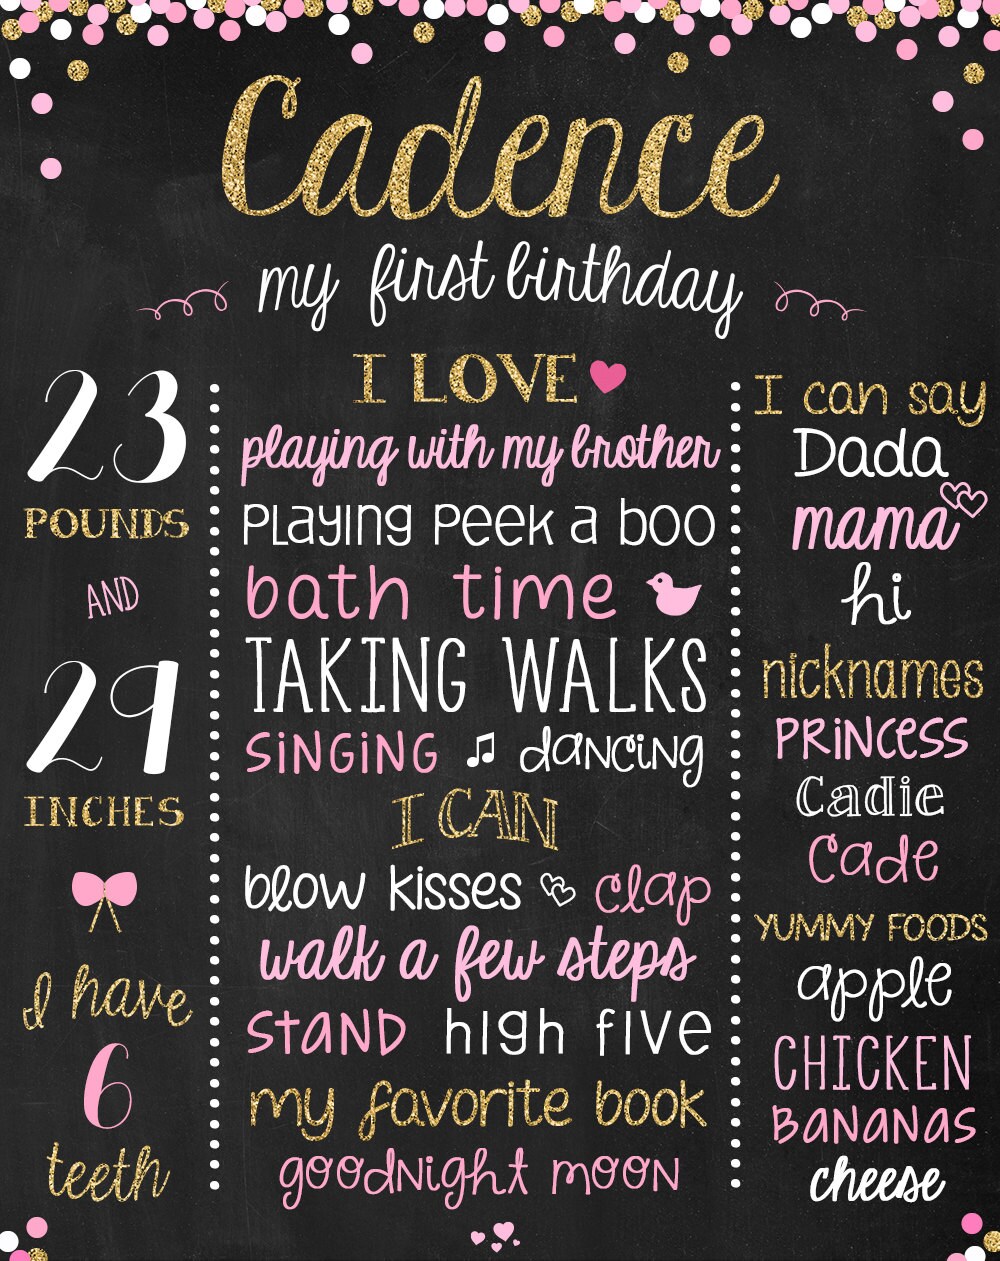 Cadence
my first birthday
23
POUNDS
AND
29
INCHES
I have
6
teeth
I LOVE
playing with my brother
PLAYING PEEK A BOO
bath time
TAKING WALKS
SINGING dancing
I CAN
blow kisses clap
walk a few steps
STAND high five
my favorite book
goodnight moon
I can say
Dada
mama
hi
nicknames
PRINCESS
Cadie
Cade
YUMMY FOODS
apple
CHICKEN
BANANAS
cheese